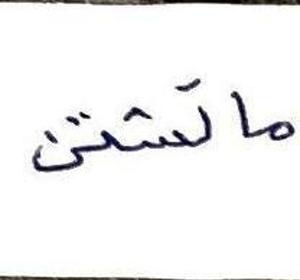 ما تشتن